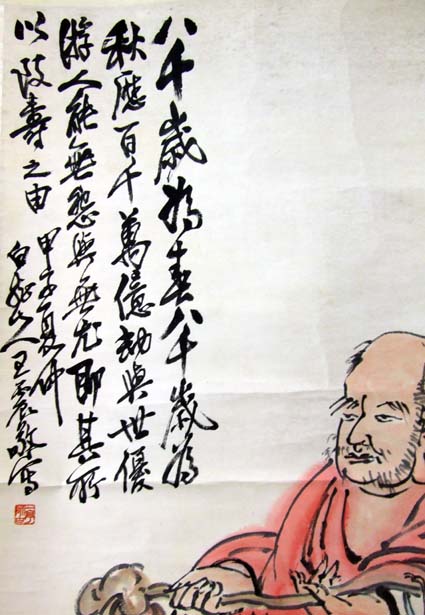 八千歲為春八千歲為
秋歷百千萬億劫與世優
游人能無怨與無尤即其所
以致壽之由
甲子夏仲
白龍山人王震敬寫